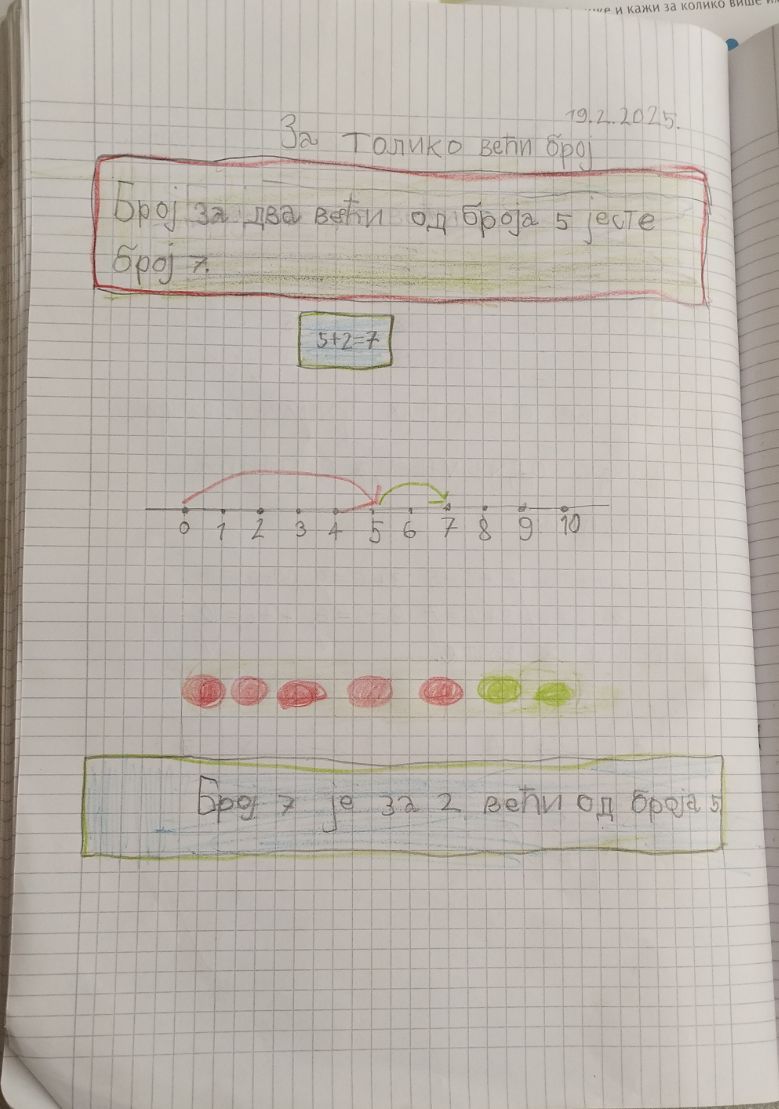 и кажи за колико више
19.2.2025.
За толико већи број
Број за два већи од броја 5 јесте
број 7.
5+2=7
0 1 2 3 4 5 6 7 8 9 10
Број 7 је за 2 већи од броја 5